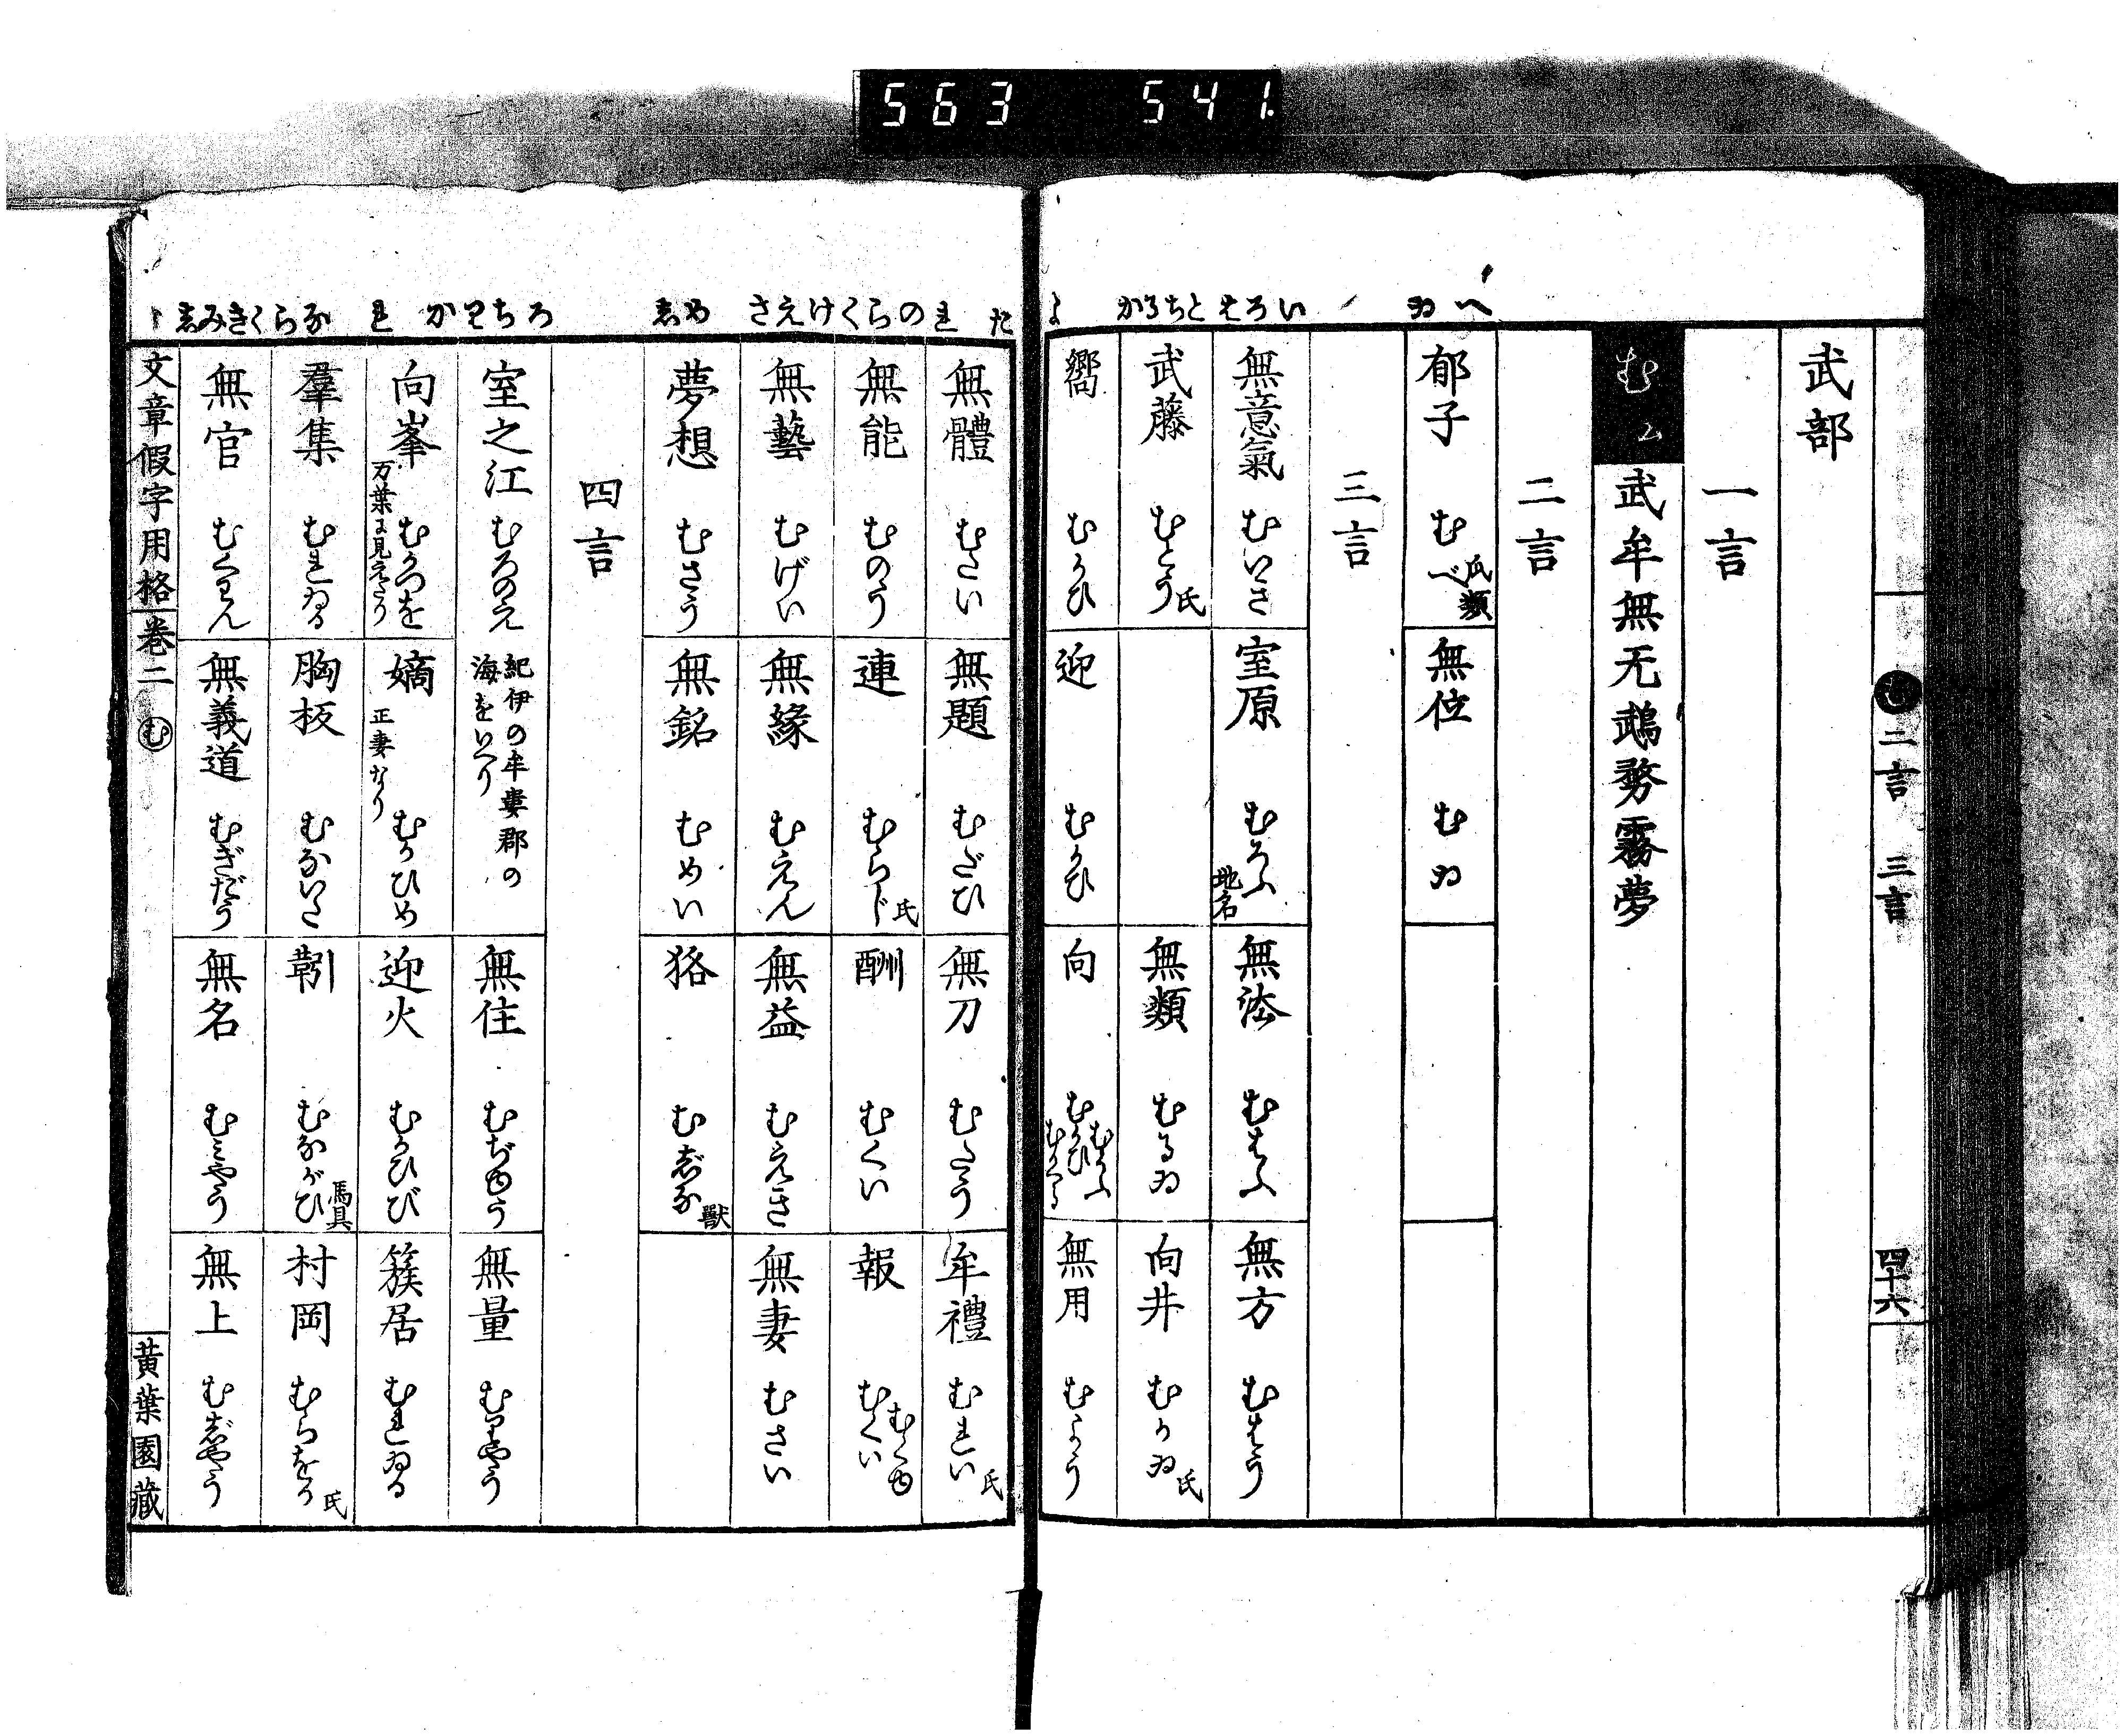 563 541
二言 三言
四十六
武部
一言
むム 武牟無无鵡務霧夢
二言
郁子 むべ 氏類
無位 むゐ
三言
無意氣 むいき
室原 むろふ 地名
無法 むはふ
無方 むはう
武藤 むとう 氏
無類 むるゐ
向井 むかゐ 氏
嚮 むかひ
迎 むかひ
向 むかひ むかふ むかへる
無用 むよう
無體 むたい
無題 むだひ
無刀 むたう
牟禮 むれい 氏
無能 むのう
連 むらじ 氏
酬 むくい
報 むくい むくゆ
無藝 むげい
無緣 むえん
無益 むえき
無妻 むさい
夢想 むさう
無銘 むめい
狢 むじな 獸
四言
室之江 むろのえ 紀伊の牟婁郡の海をいへり
無住 むぢゆう
無量 むりやう
向峯 むかつを 万葉に見えたり
嫡 むかひめ 正妻なり
迎火 むかひび
簇居 むれゐる
羣集 むれゐる
胸板 むないた
靷 むながひ 馬具
村岡 むらをか 氏
無官 むくわん
無義道 むぎだう
無名 むミやう
無上 むじやう
文章假字用格 卷二 む
黃葉園藏